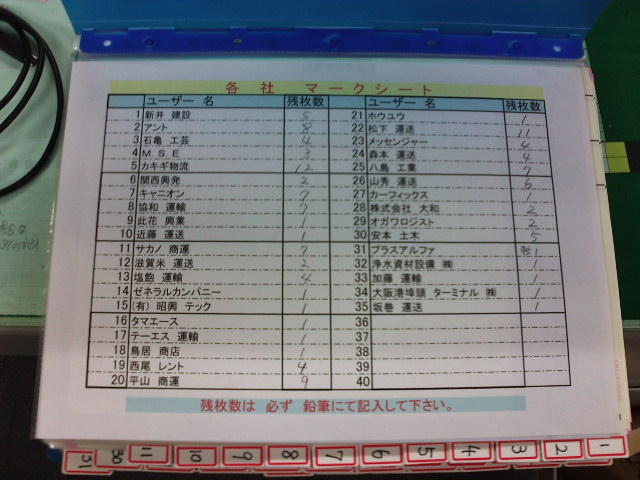 各社 マークシート
ユーザー 名 残枚数 ユーザー 名 残枚数
1 新井 建設 5 21 ホウユウ 1
2 アント 8 22 松下 運送 11
3 石亀 工芸 4 23 メッセンジャー 4
4 M S E 3 24 森本 運送 4
5 カキギ物流 12 25 八島 工業 7
6 関西興発 2 26 山秀 運送 6
7 キャニオン 7 27 カーフィックス 1
8 協和 運輸 7 28 株式会社 大和 2
9 此花 興業 1 29 オガワロジスト 2
10 近藤 運送 1 30 安本 土木 5
11 サカノ 商運 7 31 プラスアルファ 1
12 滋賀米 運送 2 32 浄水資材設備 ㈱ 1
13 塩飽 運輸 4 33 加藤 運輸 1
14 ゼネラルカンパニー 1 34 大阪港埠頭 ターミナル ㈱ 1
15 (有) 昭興 テック 1 35 坂巻 運送 1
16 タマエース 1 36
17 テーエス 運輸 1 37
18 鳥居 商店 1 38
19 西尾 レント 4 39
20 平山 商運 9 40
残枚数は 必ず 鉛筆にて記入して下さい。
31 30 11 10 9 8 7 6 5 4 3 2 1